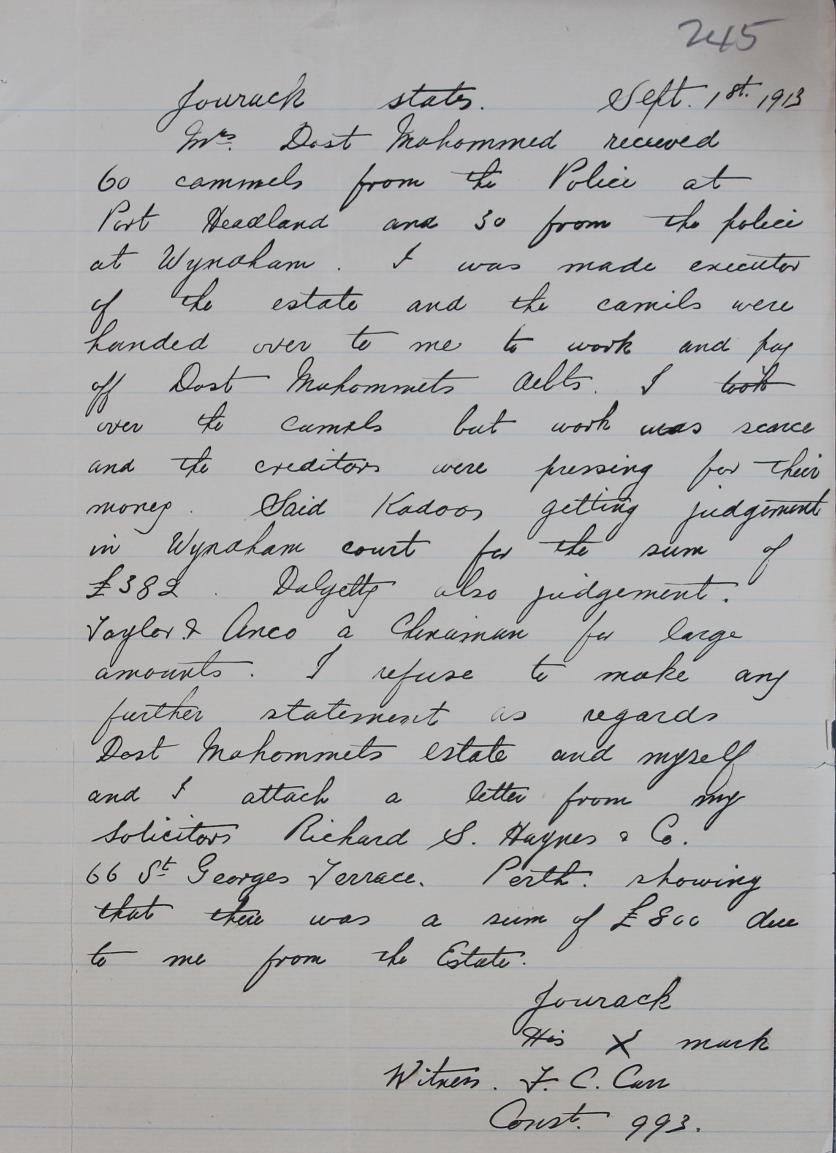 245
Jourack states. Sept. 1st. 1913
Mrs. Dost Mahommed recieved
60 cammels from the Police at
Port Headland and 30 from the police
at Wyndham. I was made executor
of the estate and the camils were
handed over to me to work and pay
off Dost Mahommets debts. I took
over the camels but work was scarce
and the creditors were pressing for their
money. Said Kadoos getting judgement
in Wyndham court for the sum of
£382. Dalgetty also judgement.
Taylor & Anco a Chinaman for large
amounts. I refuse to make any
further statement as regards
Dost Mahommets estate and myself
and I attach a letter from my
Solicitors Richard S. Haynes & Co.
66 St Georges Terrace. Perth. showing
that there was a sum of £800 due
to me from the Estate.
Jourack
His X mark
Witness. F. C. Carr
Const. 993.